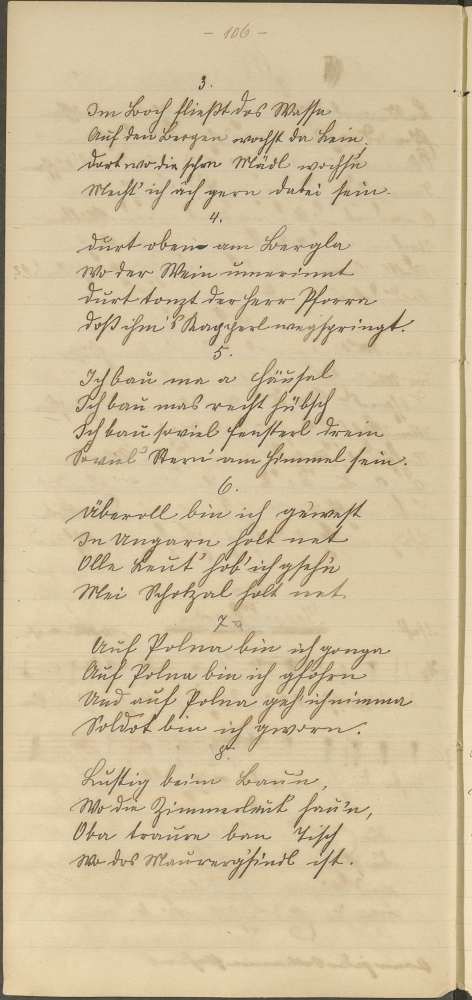 - 106 -
3.
Im Boch fließt dos Wasser
Auf den Bergen wochst da Lein,
Dort wo die schen Mädl wochsn
Mecht' ich ach gern dabei sein.
4.
Durt oben am Bergla
Wo der Wein umerinnt
Durt tonzt der Herr Pforra
Doß ihm's Kapperl wegspringt.
5.
Ich bau ma a Häusal
Ich bau mas recht hübsch
Ich bau soviel Fensterl drein
Soviel Stern' am Himmel sein.
6.
Überoll bin ich gewest
In Ungarn holt net
Olle Leut' hob' ich gsehn
Mei Schotzal holt net.
7.
Auf Polna bin ich gonga
Auf Polna bin ich gfohrn
Und auf Polna geh' ich nimma
Soldot bin ich gworn.
8.
Lustig beim Baun,
Wo die Zimmerleut' hau'n,
Oba traure ban Tisch
Wo dos Maurergsindl ist.